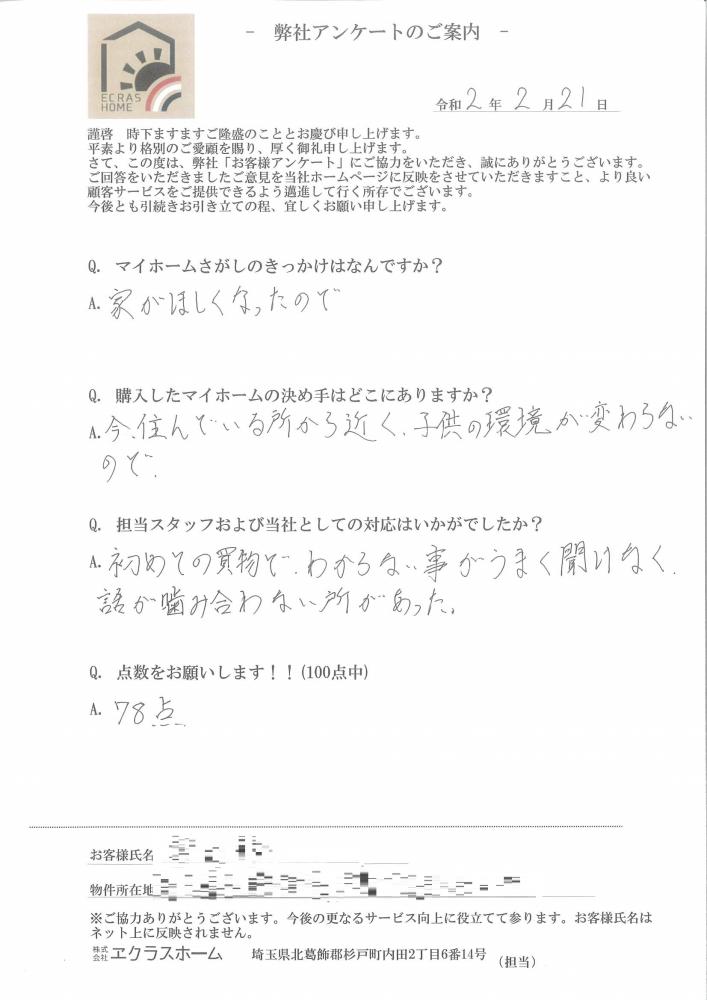 ECRAS
HOME
- 弊社アンケートのご案内 -
令和 2 年 2 月 21 日
謹啓 時下ますますご隆盛のこととお慶び申し上げます。
平素より格別のご愛顧を賜り、厚く御礼申し上げます。
さて、この度は、弊社「お客様アンケート」にご協力をいただき、誠にありがとうございます。
ご回答をいただきましたご意見を当社ホームページに反映をさせていただきますこと、より良い
顧客サービスをご提供できるよう邁進して行く所存でございます。
今後とも引続きお引き立ての程、宜しくお願い申し上げます。
Q. マイホームさがしのきっかけはなんですか？
A. 家がほしくなったので
Q. 購入したマイホームの決め手はどこにありますか？
A. 今、住んでいる所から近く、子供の環境が変わらない
ので、
Q. 担当スタッフおよび当社としての対応はいかがでしたか？
A. 初めての買物で、わからない事がうまく聞けなく、
話が噛み合わない所があった。
Q. 点数をお願いします！！(100点中)
A. 78点
お客様氏名
物件所在地
※ご協力ありがとうございます。今後の更なるサービス向上に役立てて参ります。お客様氏名は
ネット上に反映されません。
株式会社 ヱクラスホーム 埼玉県北葛飾郡杉戸町内田2丁目6番14号 （担当）